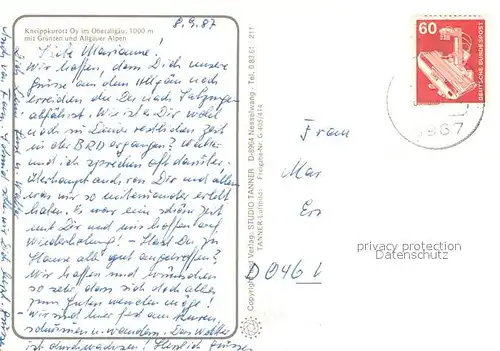 Kneippkurort Oy im Oberallgäu, 1000 m
mit Grünten und Allgäuer Alpen
8.9.87
Liebe Marianne!
Wir hoffen, dass Dich unsere
Grüsse aus dem Allgäu noch
erreichen die Du nach
abfährst. Wie ist es Dir wohl
noch in Deiner restlichen Zeit
in der BRD ergangen? Walter
und ich sprechen oft darüber.
Überhaupt auch von Dir und allem
was wir so miteinander erlebt
haben. Es war eine schöne Zeit
mit Dir und uns hoffentlich
Wiederholung! - Hast Du zu
Hause alles gut angetroffen?
Wir hoffen und wünschen
so sehr dass sich doch alles
zum Guten wenden möge!
Wir sind hier fest am Kuren,
schwimmen u. wandern. Das Wetter
ist durchwachsen! Herzlich grüssen
Copyright und Verlag: STUDIO TANNER D-8964 Nesselwang · Tel. 0 83 61 211
TANNER-Luftbild: Freigabe-Nr. G 40/414
60
DEUTSCHE BUNDESPOST
8967
Frau
Mar
Ers
D046
privacy protection
Datenschutz